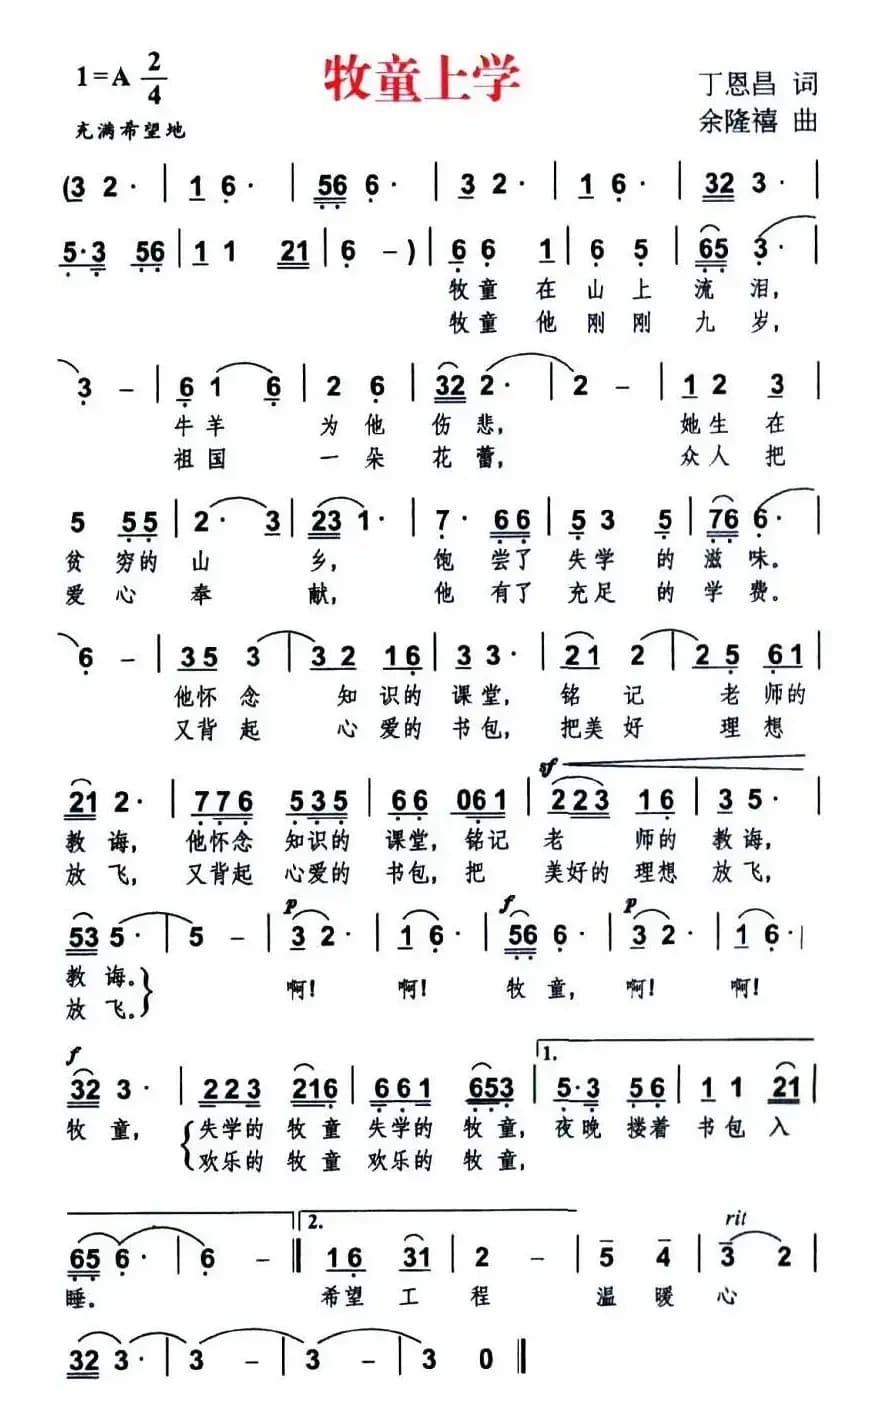 1=A 2/4
牧童上学
丁恩昌 词
充满希望地
余隆禧 曲
(3 2· | 1 6· | 56 6· | 3 2· | 1 6· | 32 3· |
5·3 56 | 1 1 21 | 6 –) | 6 6 1 | 6 5 | 65 3· |
牧童 在 山 上 流 泪,
牧童 他 刚 刚 九 岁,
3 – | 6 1 6 | 2 6 | 32 2· | 2 – | 1 2 3 |
牛羊 为他 伤悲, 她生在
祖国 一朵 花蕾, 众人把
5 55 | 2· 3 | 23 1· | 7· 66 | 5 3 5 | 76 6· |
贫 穷的 山 乡, 饱 尝了 失学 的 滋味。
爱 心 奉 献, 他 有了 充足 的 学费。
6 – | 35 3 | 32 16 | 3 3· | 21 2 | 25 61 |
他怀 念 知 识的 课堂, 铭 记 老 师的
又背 起 心 爱的 书包, 把美 好 理 想
sf
21 2· | 776 535 | 66 061 | 223 16 | 3 5· |
教 诲, 他怀念 知识的 课堂, 铭记 老 师的 教诲,
放 飞, 又背起 心爱的 书包, 把 美好的 理想 放飞,
p f p
53 5· | 5 – | 3 2· | 1 6· | 56 6· | 3 2· | 1 6· |
教 诲。 啊! 啊! 牧童, 啊! 啊!
放 飞。
f 1.
32 3· | 223 216 | 661 653 | 5·3 56 | 1 1 21 |
牧 童, 失学的 牧童 失学的 牧童, 夜晚 搂着 书包入
欢乐的 牧童 欢乐的 牧童,
2. rit
65 6· | 6 – ‖ 16 31 | 2 – | 5 4 | 3 2 |
睡。 希望 工 程 温 暖 心
32 3· | 3 – | 3 – | 3 0 ‖